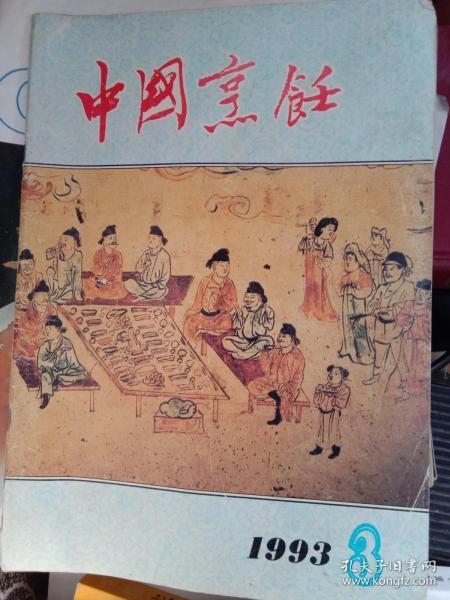 中國烹飪
1993 3
孔夫子旧书网
www.kongfz.com